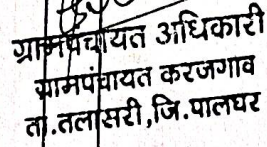 ग्रामपंचायत अधिकारी
ग्रामपंचायत करजगाव
ता.तलासरी,जि.पालघर